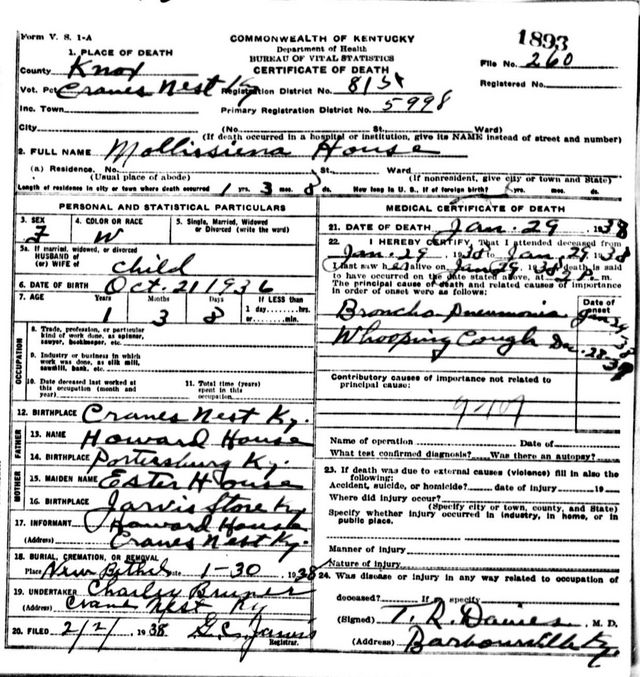 Form V. S. 1-A
COMMONWEALTH OF KENTUCKY
Department of Health
BUREAU OF VITAL STATISTICS
CERTIFICATE OF DEATH
1893
File No. 260
Registered No.
1. PLACE OF DEATH
County Knox
Vot. Pct Cranes Nest Ky Registration District No. 815
Inc. Town Primary Registration District No. 5998
City (No. St. Ward)
(If death occurred in a hospital or institution, give its NAME instead of street and number)
2. FULL NAME Mollissiena House
(a) Residence. No. St. Ward
(Usual place of abode) (If nonresident, give city or town and State)
Length of residence in city or town where death occurred 1 yrs. 3 mos. 8 ds. How long in U. S., if of foreign birth? yrs. mos. ds.
PERSONAL AND STATISTICAL PARTICULARS
3. SEX F
4. COLOR OR RACE W
5. Single, Married, Widowed or Divorced (write the word)
5a. If married, widowed, or divorced
HUSBAND of
(or) WIFE of Child
6. DATE OF BIRTH Oct. 21 1936
7. AGE Years Months Days If LESS than
1 3 8 1 day hrs.
or min.
OCCUPATION
8. Trade, profession, or particular
kind of work done, as spinner,
sawyer, bookkeeper, etc.
9. Industry or business in which
work was done, as silk mill,
sawmill, bank, etc.
10. Date deceased last worked at
this occupation (month and
year)
11. Total time (years)
spent in this
occupation
12. BIRTHPLACE Cranes Nest Ky.
FATHER
13. NAME Howard House
14. BIRTHPLACE Ky.
MOTHER
15. MAIDEN NAME Ester House
16. BIRTHPLACE Jarvis Store Ky
17. INFORMANT Howard House
(Address) Cranes Nest Ky.
18. BURIAL, CREMATION, OR REMOVAL
Place New Bethel Date 1-30 1938
19. UNDERTAKER Charley Bruner
(Address) Crane Nest Ky
20. FILED 2/2/ 1938 G. C. Jarvis
Registrar.
MEDICAL CERTIFICATE OF DEATH
21. DATE OF DEATH Jan. 29 1938
22. I HEREBY CERTIFY, That I attended deceased from
Jan. 29 1938 to Jan. 29 1938
I last saw h alive on Jan 29 1938 death is said
to have occurred on the date stated above, at m.
The principal cause of death and related causes of importance
in order of onset were as follows:
Date of onset
Broncho Pneumonia Jan 24 38
Whooping Cough
Contributory causes of importance not related to
principal cause:
Name of operation Date of
What test confirmed diagnosis? Was there an autopsy?
23. If death was due to external causes (violence) fill in also the
following:
Accident, suicide, or homicide? date of injury 19
Where did injury occur?
(Specify city or town, county, and State)
Specify whether injury occurred in industry, in home, or in
public place.
Manner of injury
Nature of injury
24. Was disease or injury in any way related to occupation of
deceased? If so, specify
(Signed) T. R. Davies M. D.
(Address) Barbourville Ky.